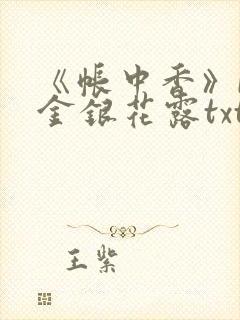 《帐中香》
金银花露txt
王紫